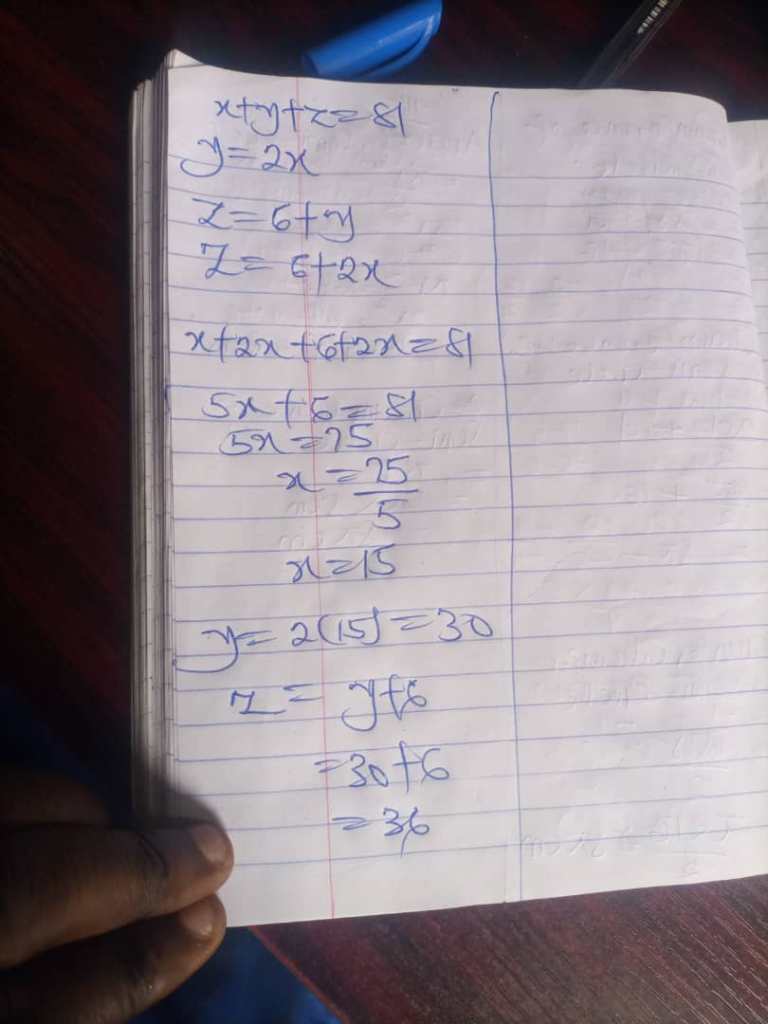 x+y+z=81
y=2x
z=6+y
z=6+2x
x+2x+6+2x=81
5x+6=81
5x=75
x=75
5
x=15
y=2(15)=30
z= y+6
=30+6
=36